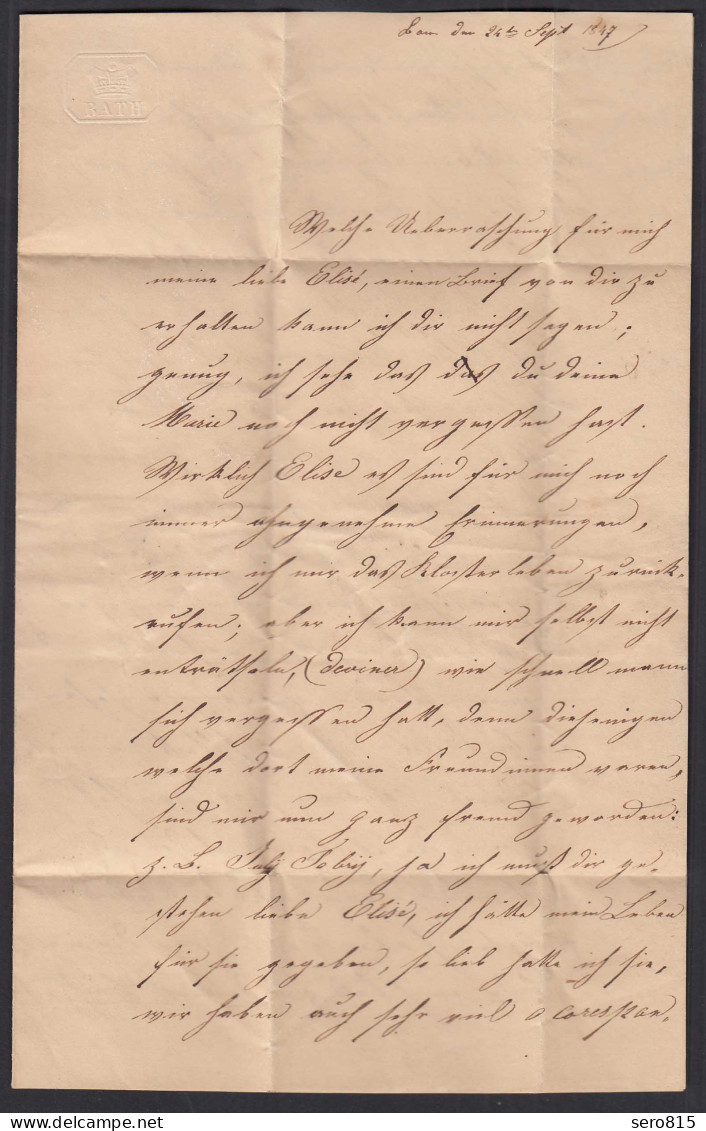 BATH
den 24ten Sept 1847
Welche Ueberraschung für mich
meine liebe Elisé, einen Brief von dir zu
erhalten kann ich dir nicht sagen;
genug, ich sehe das das du deine
Marie noch nicht vergessen hast.
Wirklich Elise es sind für mich noch
immer ahngenehme Erinnerungen,
wenn ich mir das Klosterleben zurück-
rufen; aber ich kann mir selbst nicht
enträtseln, (deviner) wie schnell mann
sich vergessen hatt, denn diejenigen
welche dort meine Freundinnen waren,
sind mir nun ganz fremd geworden:
z. B. ja ich muß dir ge-
stehen liebe Elisé, ich hätte mein Leben
für sie gegeben, so lieb hatte ich sie,
wir haben auch sehr viel corespon-
sero815